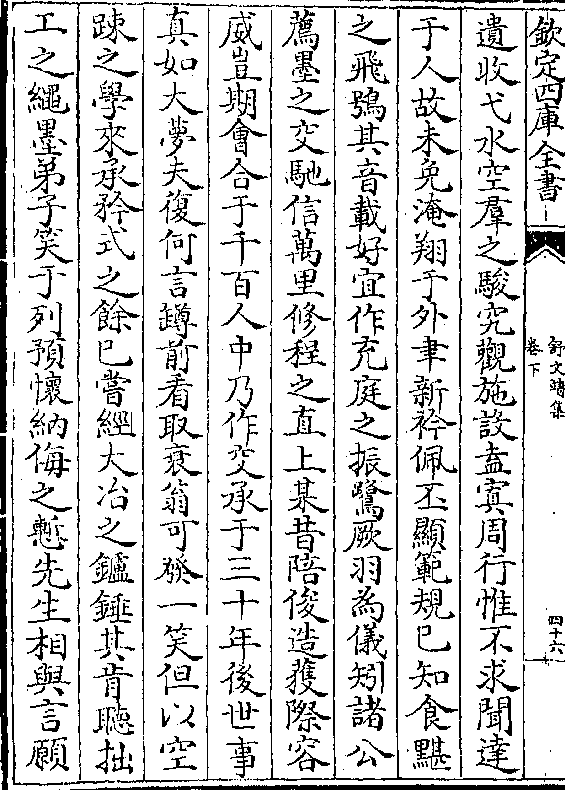 欽定四庫全書
舒文靖集
卷下
四十六
遺收弋水空羣之駿究觀施設盍寘周行惟不求聞達
于人故未免淹翔于外聿新衿佩丕顯範規已知食黮
之飛鴞其音載好宜作充庭之振鷺厥羽為儀矧諸公
薦墨之交馳信萬里修程之直上某昔陪俊造獲際容
威豈期會合于千百人中乃作交承于三十年後世事
真如大夢夫復何言罇前看取衰翁可發一笑但以空
踈之學來承矜式之餘已嘗經大冶之鑪錘其肯聽拙
工之繩墨弟子笑于列預懷納侮之慙先生相與言願